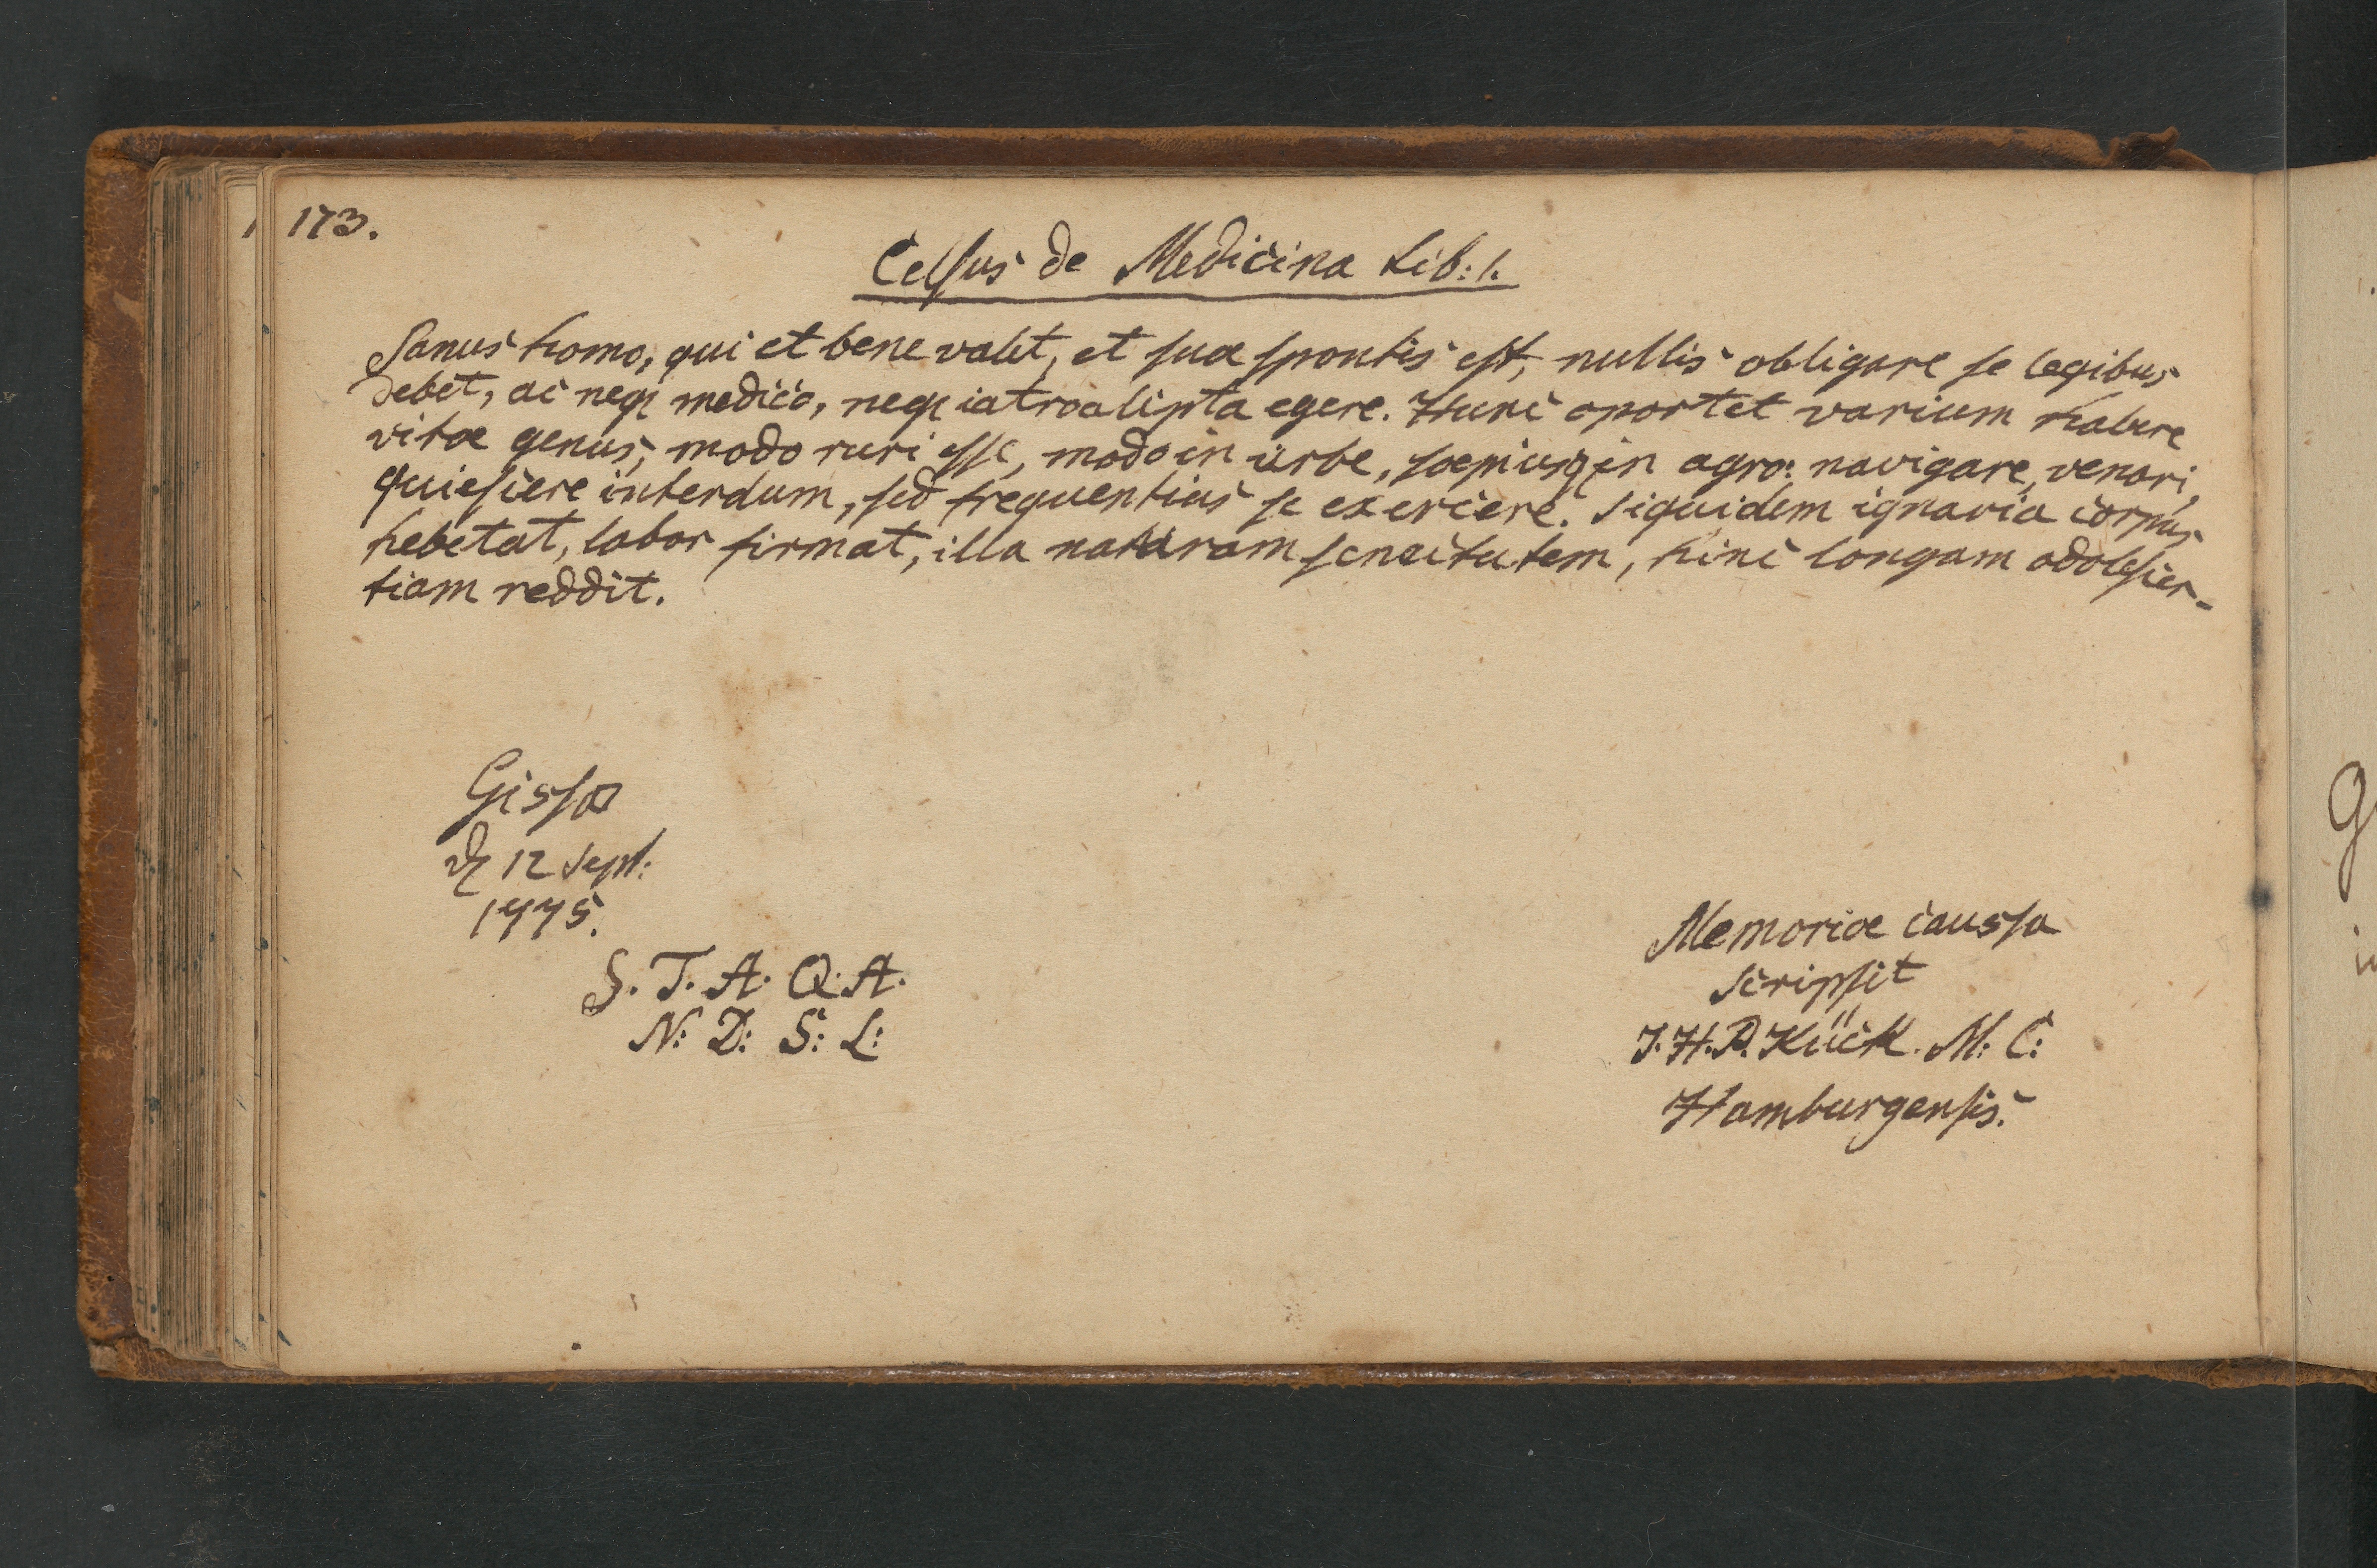 173.
Celsus de Medicina Lib: 1.
Sanus homo, qui et bene valet, et suæ spontis est, nullis obligare se legibus
debet, ac neq; medico, neq; iatroalipta egere. Hunc oportet varium habere
vitæ genus; modo ruri esse, modo in urbe, sæpiusq; in agro: navigare, venari,
quiescere interdum, sed frequentius se exercere. Siquidem ignavia corpus
hebetat, labor firmat, illa maturam senectutem, hinc longam adolescen-
tiam reddit.
Gissæ
d. 12 Sept:
1775.
S. T. A. Q. A.
N: D: S: L:
Memoriæ caussa
scripsit
J. H. P. Kück. M: C:
Hamburgensis.